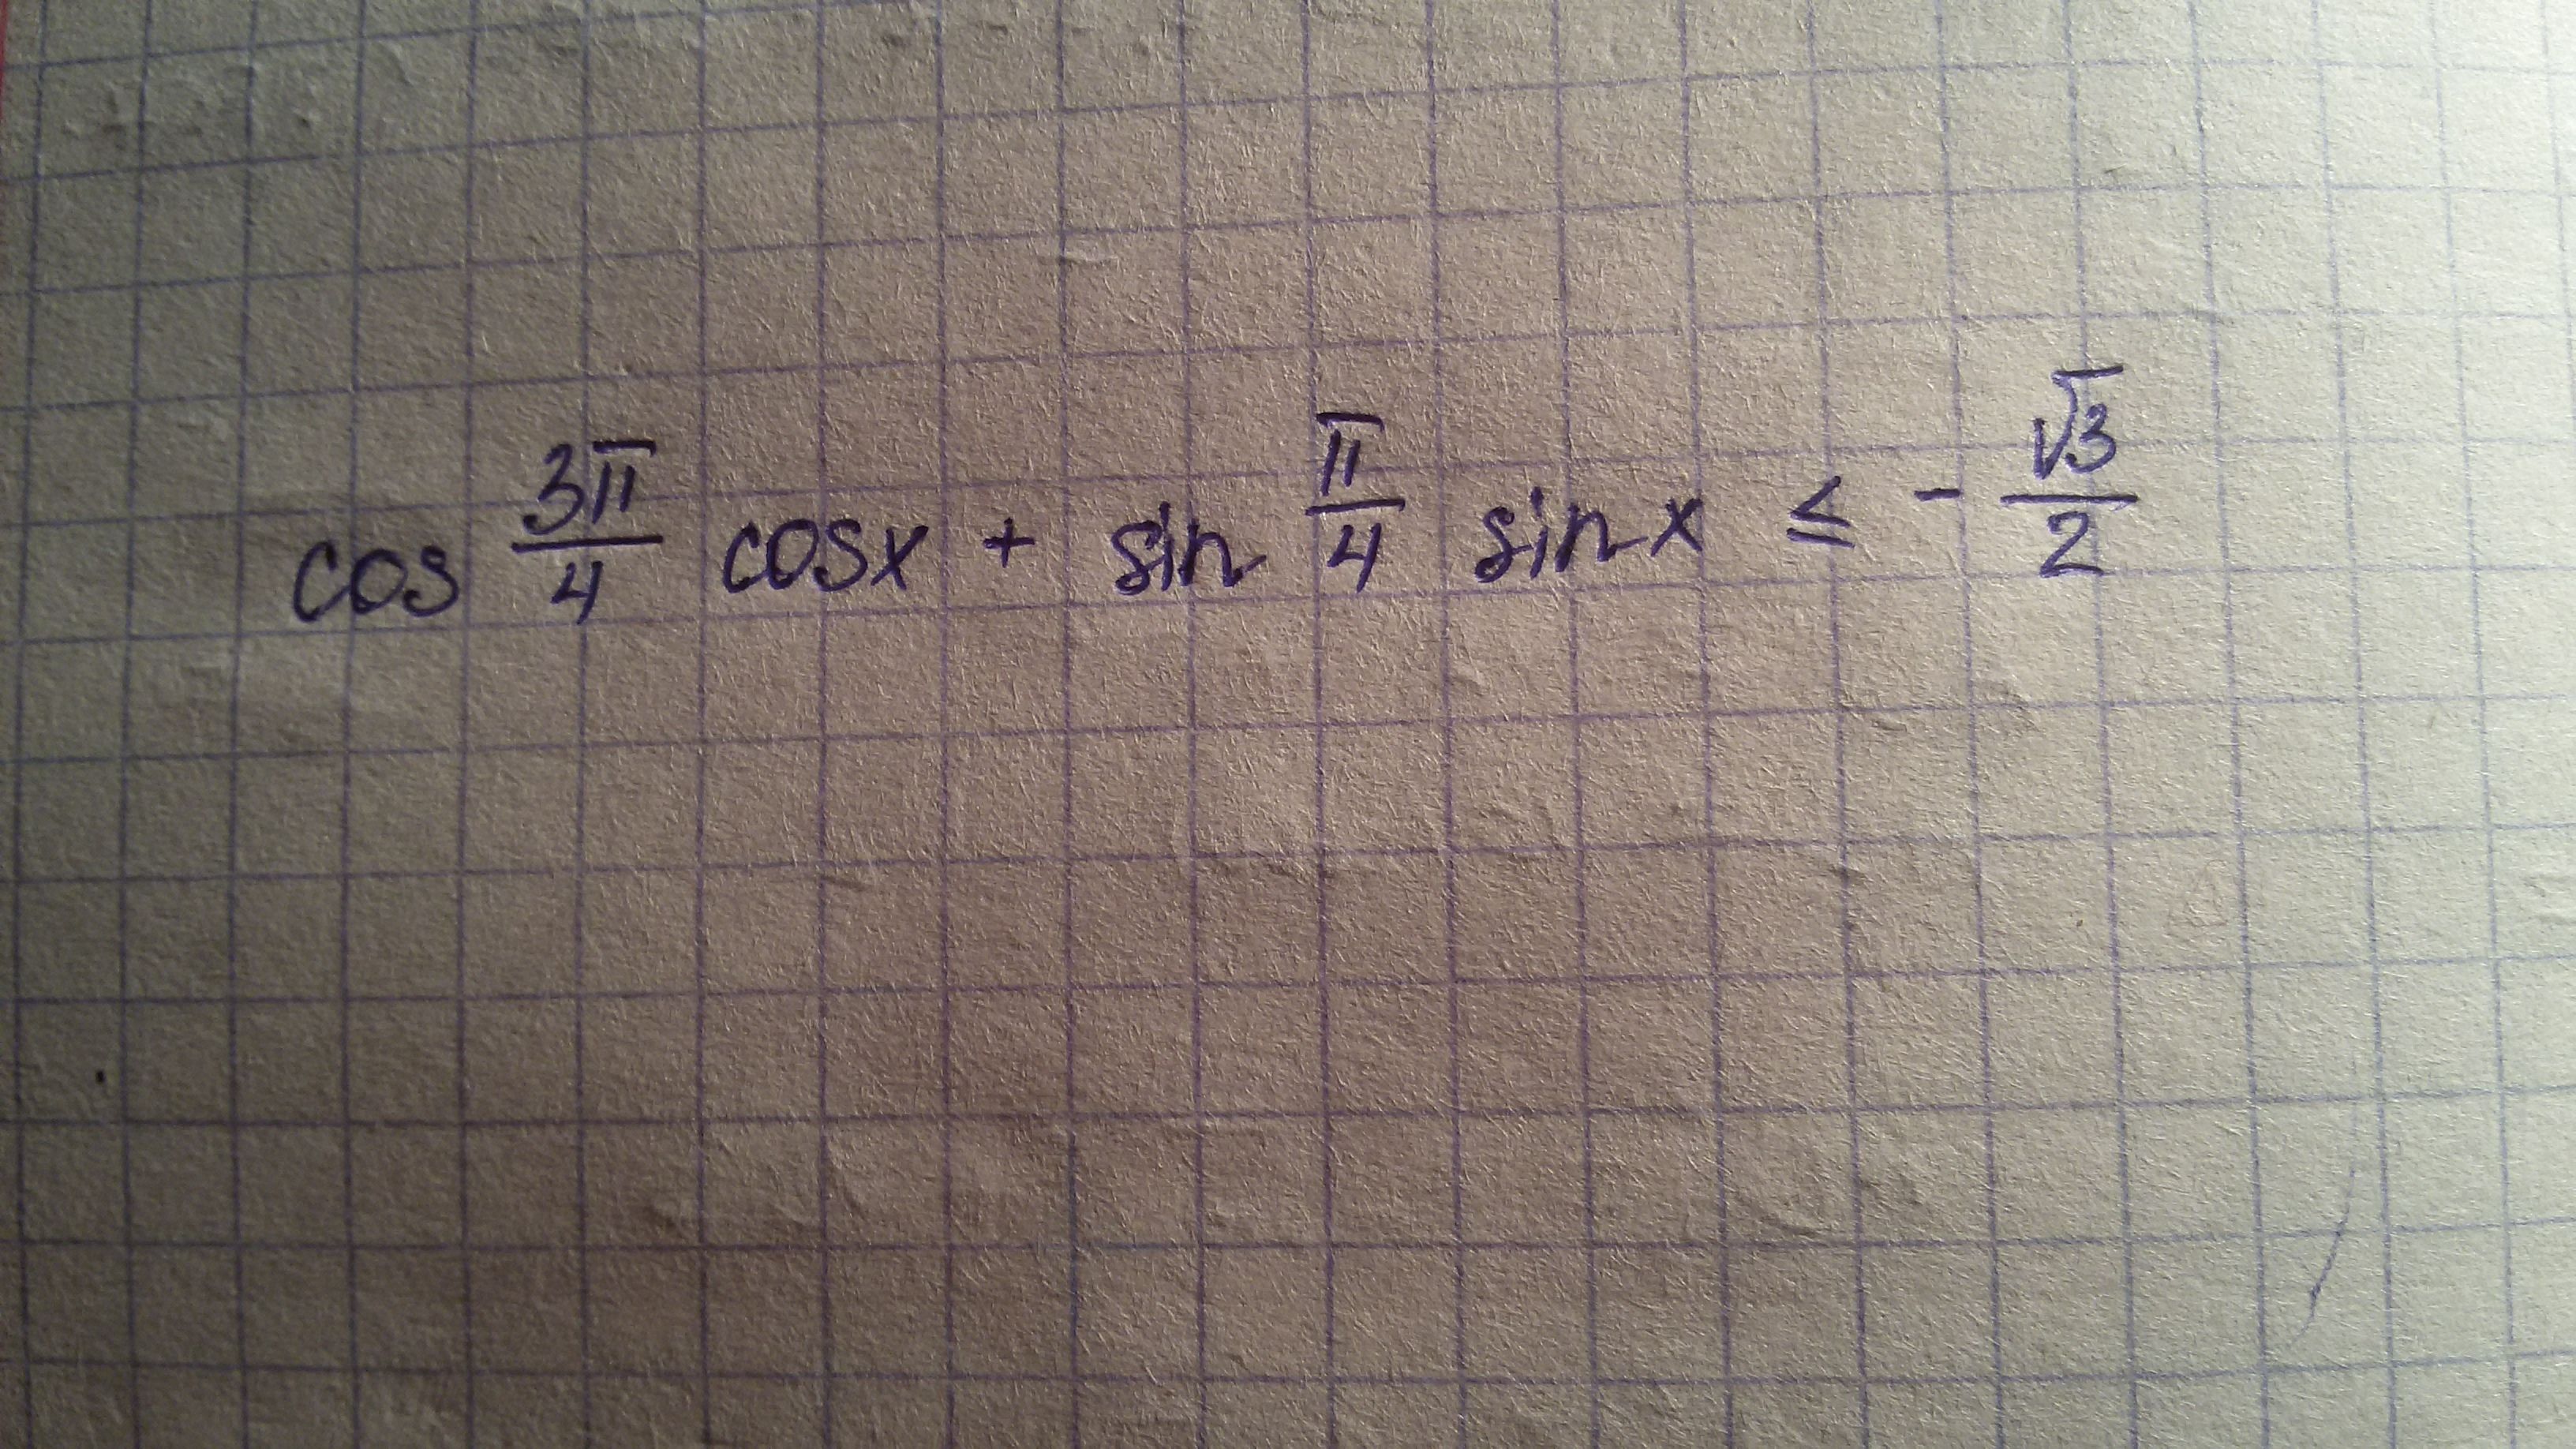 cos 3π/4 cosx + sin π/4 sinx ≤ - √3/2